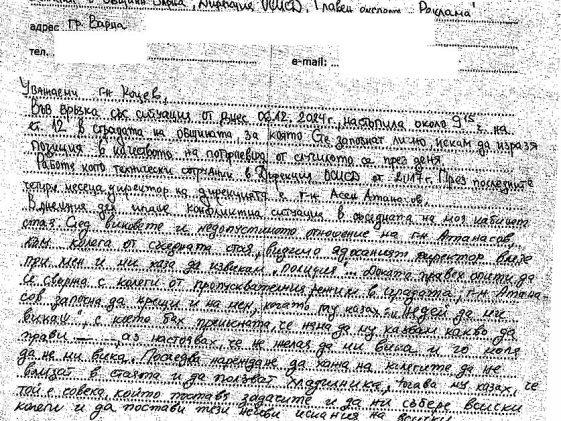 в Община Варна, Дирекция ОСИСД, Главен експерт "Реклама"
адрес гр. Варна
тел. e-mail: ...
Уважаеми г-н Коцев,
Във връзка със ситуация от днес 06.12.2024 г., настъпила около 9 15 ч. на
ет. 12 в сградата на общината, за която сте запознат лично, искам да изразя
позиция в качеството на потърпевш от случилото се през деня.
Работя като технически сътрудник в Дирекция ОСИСД от 2017 г. През последните
четири месеца директор на дирекцията е г-н Асен Атанасов.
В днешния ден имаше конфликтна ситуация в съседната на моя кабинет
стая. След виковете и недопустимото отношение на г-н Атанасов,
към колега от съседната стая, видимо ядосаният директор влезе
при мен и ми каза да извикам "полиция"... Докато правех опити да
се свържа с колеги от пропускателния режим в сградата, г-н Атана-
сов започна да крещи и на мен, когато му казах "Недей да ми
викаш", с което бях прекъсната, че няма да му казвам какво да
прави ... аз настоявах, че не желая да ми вика и го моля
да не ми вика. Последва нареждане да кажа на колегите да не
влизат в стаята и да ползват хладилника, тогава му казах, че
той е човека, който поставя задачите и да ни събере всички
колеги и да постави тези негови искания на всички